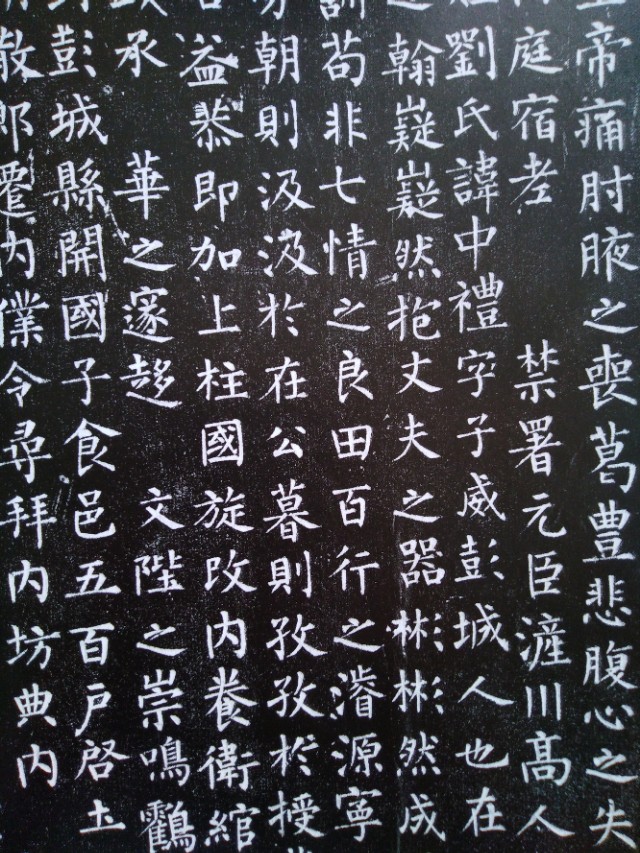 帝痛肘腋之喪葛豊悲腹心之失
庭宿 禁署元臣滻川髙人
劉氏諱中禮字子威彭城人也在
翰嶷嶷然抱丈夫之器彬彬然成
訓苟非七情之良田百行之濬源寧
朝則汲汲於在公暮則孜孜於授
益恭即加上柱國旋改内養衛綰
承 華之邃趍 文陛之崇鳴鸖
彭城縣開國子食邑五百戶啓土
散郎遷内僕令尋拜内坊典内